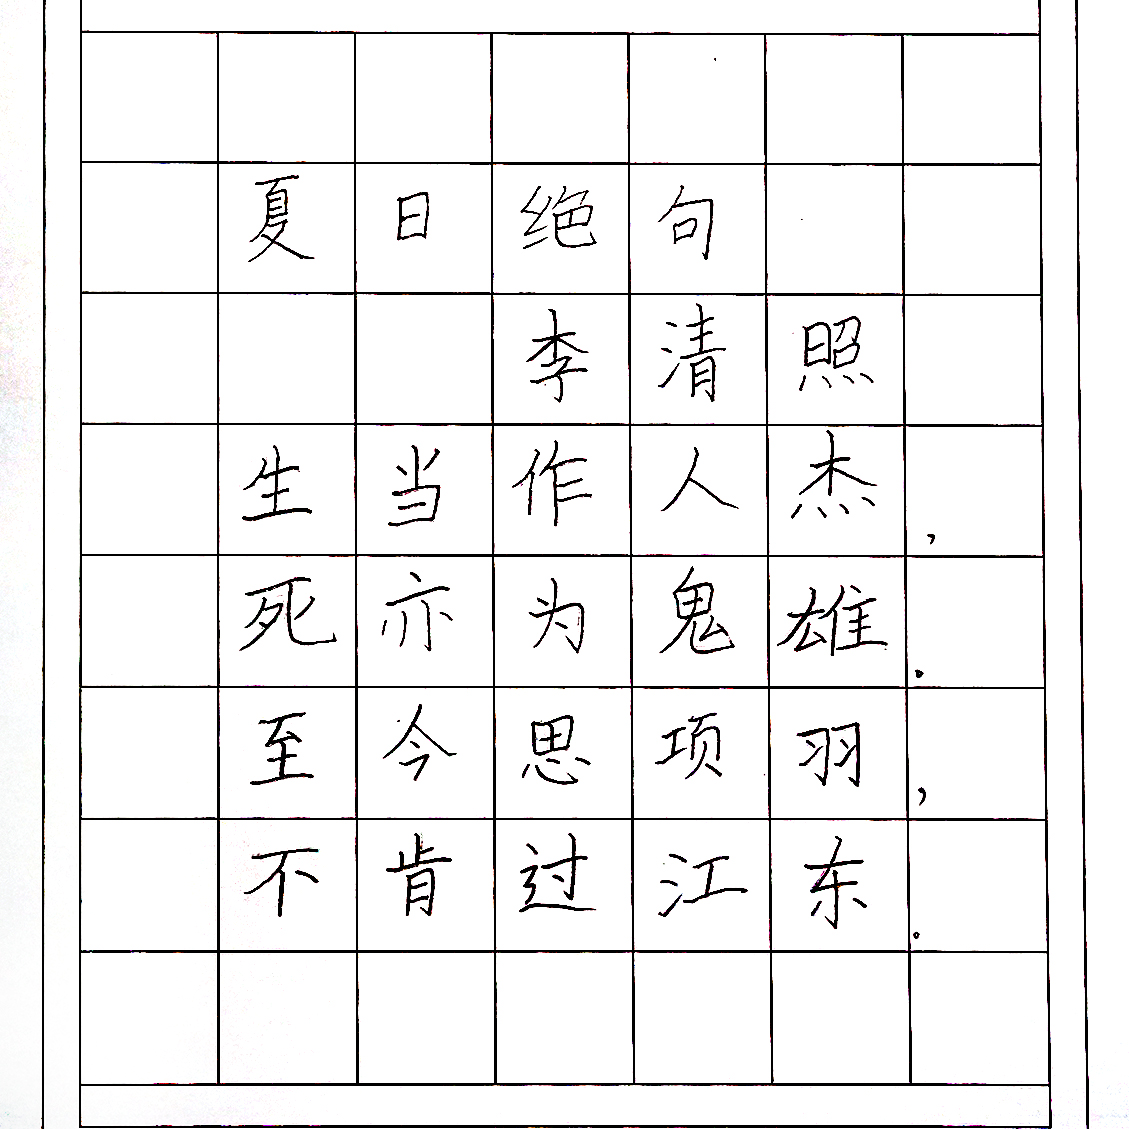 夏日绝句
李清照
生当作人杰，
死亦为鬼雄。
至今思项羽，
不肯过江东。